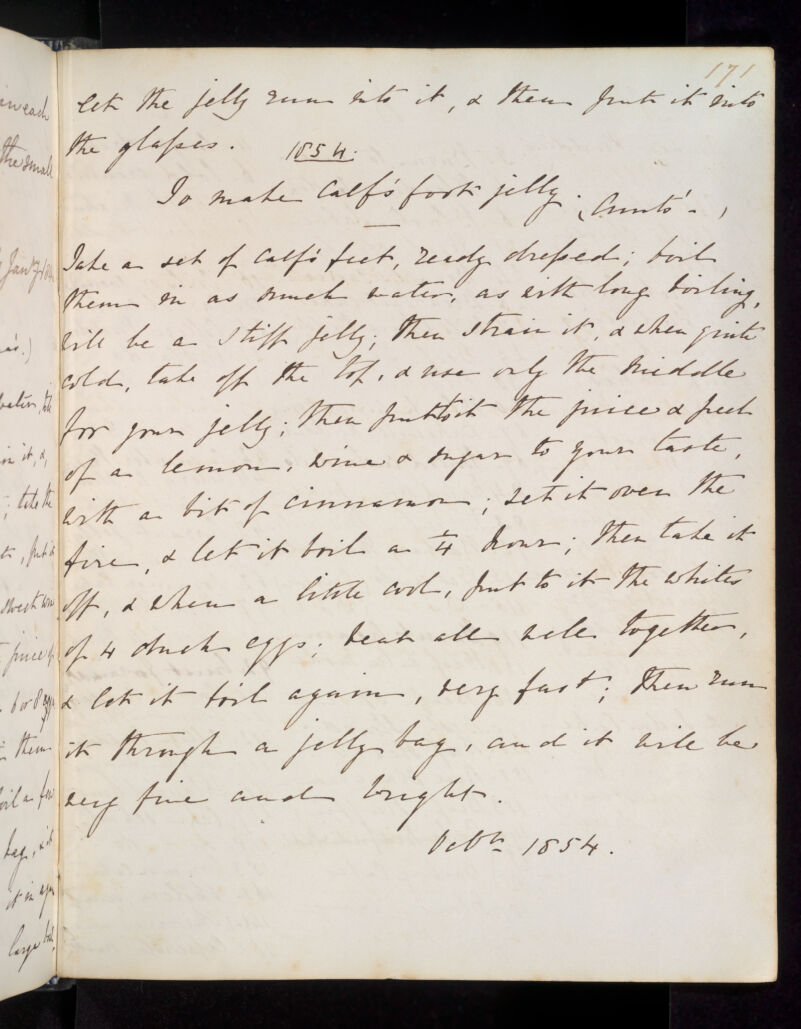 171
let the jelly run into it, & then put it into
the glasses.
1854.
To make Calf's foot jelly. (Aunts'-)
Take a set of Calf's feet, ready dressed; boil
them in as much water, as with long boiling,
will be a stiff jelly; then strain it, & when quite
cold, take off the top, & use only the middle
for your jelly; then put to it the juice & peel
of a lemon, wine & sugar to your taste,
with a bit of cinnamon; set it over the
fire, & let it boil a ¼ hour; then take it
off, & when a little cool, put to it the whites
of 4 duck eggs; beat all well together,
& let it boil again, very fast; then run
it through a jelly bag, and it will be
very fine and bright.
Octbr. 1854.
in each
the small
Jany
water,
in it, &
; take the
juice
6 or 8 eggs
them
boil a few
bag, &
it in
large